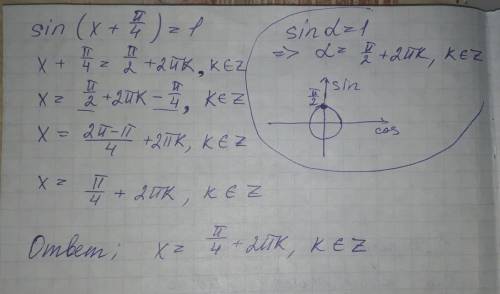 sin (x + π/4) = 1
x + π/4 = π/2 + 2πk, k∈Z
x = π/2 + 2πk - π/4, k∈Z
x = (2π-π)/4 + 2πk, k∈Z
x = π/4 + 2πk, k∈Z
Ответ: x = π/4 + 2πk, k∈Z
sin α = 1
=> α = π/2 + 2πk, k∈Z
sin
π/2
cos